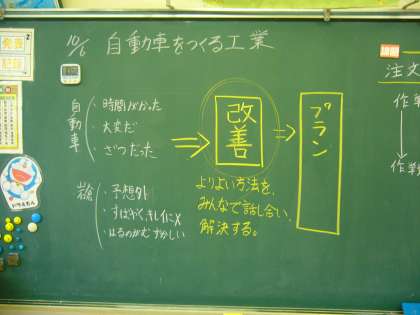 10/6 自動車をつくる工業
発表
自動車
・時間がかかった
・大変だ
・ざつだった
⇒
改善
⇒
プラン
・予想外
・すばやく、キレイに×
・はるのがむずかしい
よりよい方法を、
みんなで話し合い、
解決する。
注文
作業
↓
作業
ドラえもん